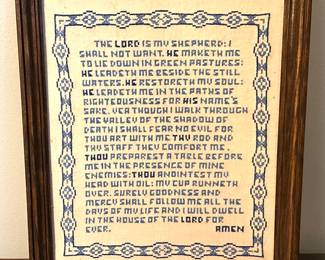 THE LORD IS MY SHEPHERD: I
SHALL NOT WANT. HE MAKETH ME
TO LIE DOWN IN GREEN PASTURES:
HE LEADETH ME BESIDE THE STILL
WATERS. HE RESTORETH MY SOUL:
HE LEADETH ME IN THE PATHS OF
RIGHTEOUSNESS FOR HIS NAME'S
SAKE. YEA THOUGH I WALK THROUGH
THE VALLEY OF THE SHADOW OF
DEATH I SHALL FEAR NO EVIL FOR
THOU ART WITH ME THY ROD AND
THY STAFF THEY COMFORT ME.
THOU PREPAREST A TABLE BEFORE
ME IN THE PRESENCE OF MINE
ENEMIES: THOU ANOINTEST MY
HEAD WITH OIL: MY CUP RUNNETH
OVER. SURELY GOODNESS AND
MERCY SHALL FOLLOW ME ALL THE
DAYS OF MY LIFE AND I WILL DWELL
IN THE HOUSE OF THE LORD FOR
EVER. AMEN